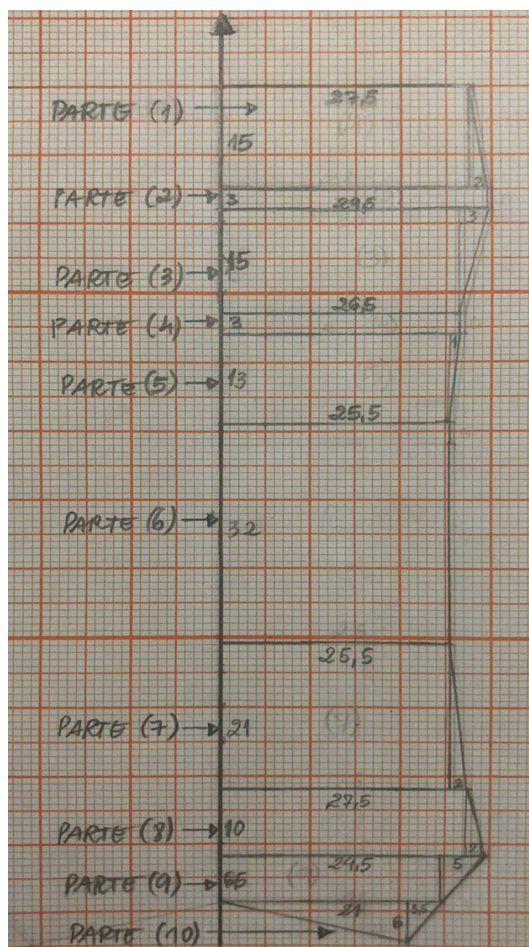 27,5
PARTE (1)
15
2
PARTE (2)
3
29,5
3
15
PARTE (3)
26,5
PARTE (4)
3
1
PARTE (5)
13
25,5
PARTE (6)
32
25,5
PARTE (7)
21
2
27,5
PARTE (8)
10
2
24,5
5
PARTE (9)
65
21
3,5
6
PARTE (10)